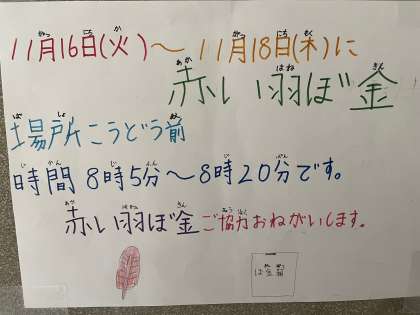 11月16日(火)～11月18日(木)に
赤い羽ぼ金
場所こうどう前
時間 8時5分～8時20分です。
赤い羽ぼ金ご協力おねがいします。